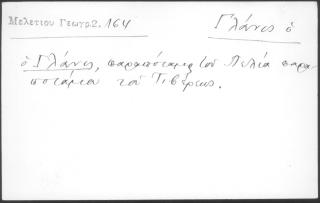 Μελετίου Γεωγρ. 2. 164
Γλάνις ὁ
ὁ Γλάνις, παραπόταμος τοῦ Πελία παρα-
ποτάμου τοῦ Τιβέρεως.